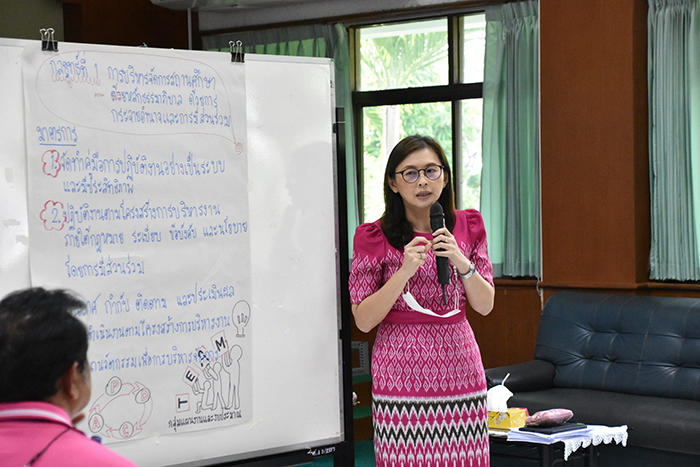 กลยุทธ์ที่ 1 การบริหารจัดการสถานศึกษา
ด้วยหลักธรรมาภิบาล ด้วยการ
กระจายอำนาจและการมีส่วนร่วม
มาตรการ
1. จัดทำคู่มือการปฏิบัติงานอย่างเป็นระบบ
และมีประสิทธิภาพ
2. ปฏิบัติงานตามโครงสร้างการบริหารงาน
ภายใต้กฎหมาย ระเบียบ ข้อบังคับ และนโยบาย
โดยการมีส่วนร่วม
นิเทศ กำกับ ติดตาม และประเมินผล
ดำเนินงานตามโครงสร้างการบริหารงาน
นวัตกรรมเพื่อการบริหาร
TEAM
กลุ่มแผนงานและงบประมาณ